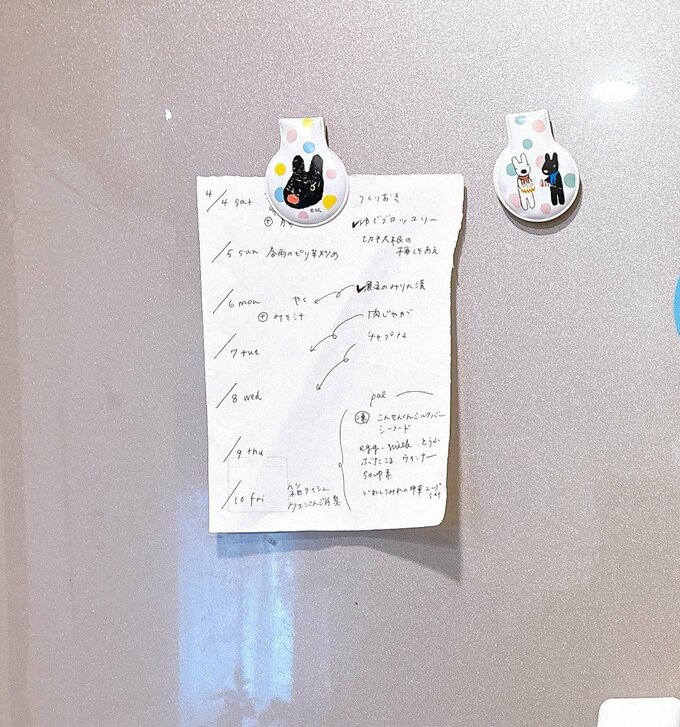 4/4 sat
つくりおき
ゆでブロッコリー
切干大根の
梅しそあえ
/5 sun 春雨のピリ辛炒め
/6 mon やく
のみりん漬
+ みそ汁
肉じゃが
チャプチェ
/7 tue
/8 wed
pal
凍 こんせんくんミルクバー
シーフード
egg. milk とうふ
ぶたこま ウインナー
/9 thu
/10 fri
箱ティシュ
クエンさん 消臭
いわしつみれの中華スープ